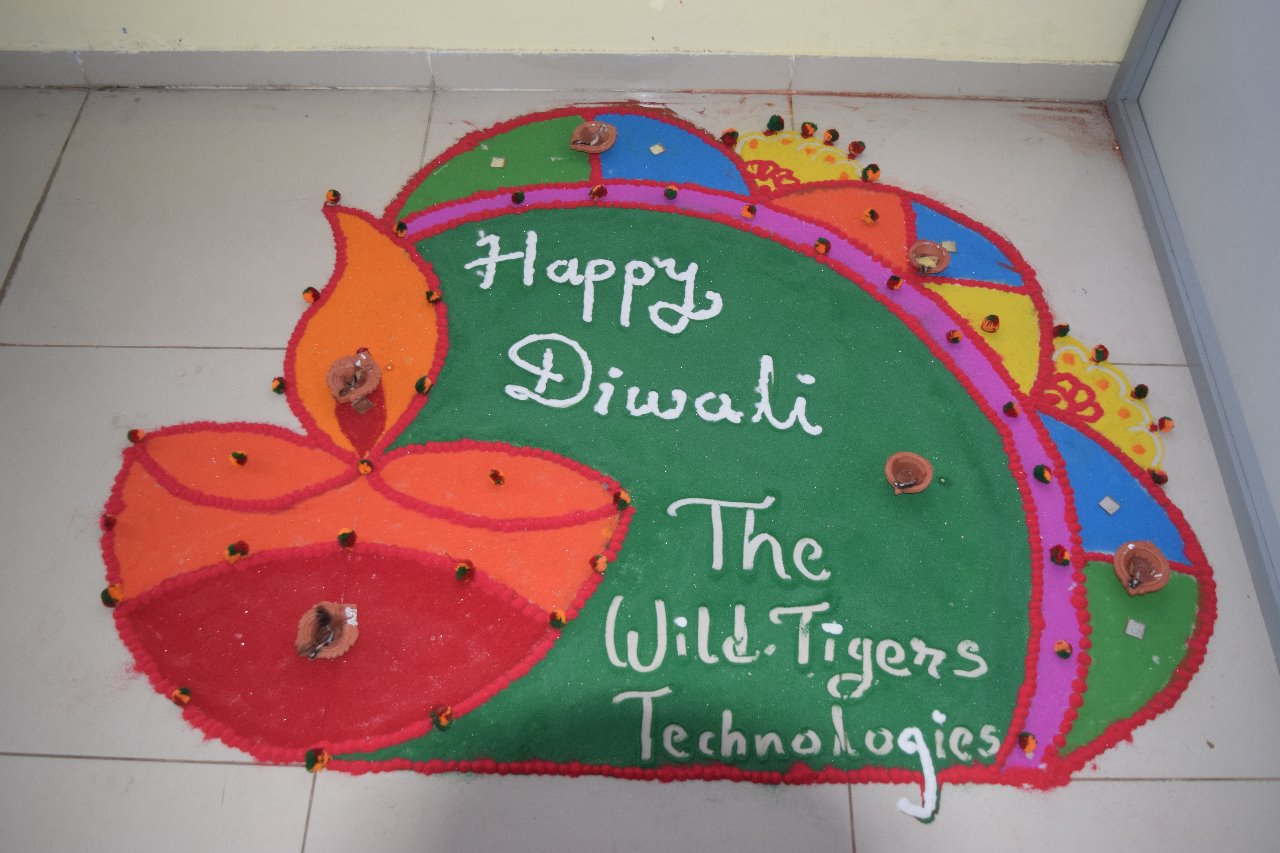 Happy
Diwali
The
Wild.Tigers
Technologies